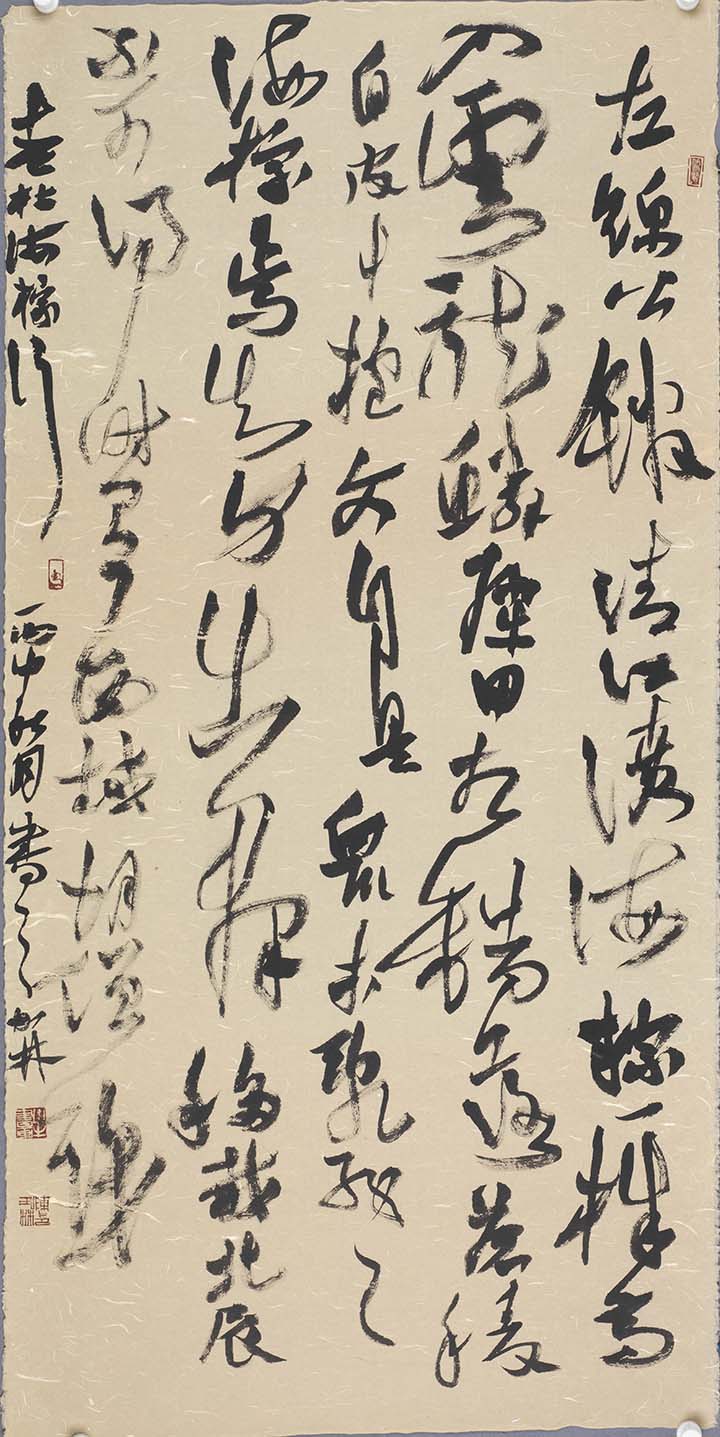 左綿公館清江濆海棕一株高
入雲龍鱗犀甲相錯落蒼稜
白皮十抱文自是眾木亂紛〻
海棕焉知身出群移栽北辰
不可得時有西域胡僧識
老杜海棕行 丙申秋月書之加林